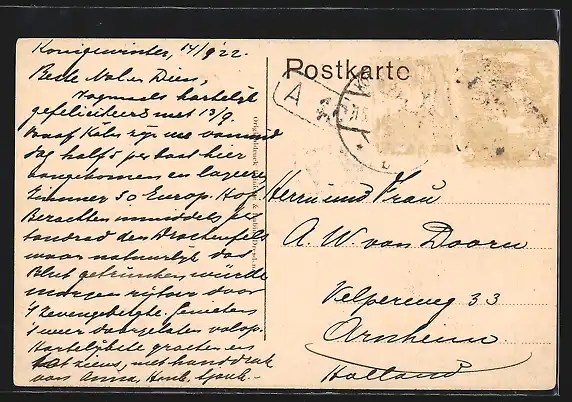 Königswinter, 14/9 22.
Beste Nol en Dien,
Nogmaals hartelijk
gefeliciteerd met 13/9.
Vanaf Keulen zijn we vanmid
dag half 5 per boot hier
aangekomen en logeeren
Zimmer 30 Europ. Hof
inmiddels per
tandrad den Drachenfels
waar natuurlijk das
Blut getrunken würde
morgen rijtoer door
't Zevengebergte. Genieten
't weer
Hartelijkste groeten en
tot ziens, met handdruk
van Anna, Henk,
Postkarte
A
Herrn und Frau
A. W. van Doorn
Velperweg 33
Arnheim
Holland